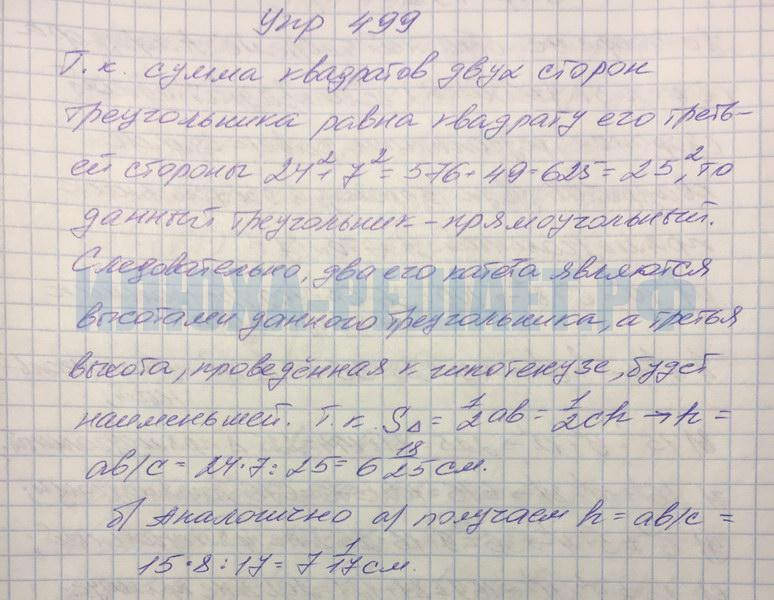 Упр 499
Т.к. сумма квадратов двух сторон
треугольника равна квадрату его треть-
ей стороны 24²+7²=576+49=625=25², то
данный треугольник – прямоугольный.
Следовательно, два его катета являются
высотами данного треугольника, а третья
высота, проведённая к гипотенузе, будет
наименьшей. Т.к. S△ = 1/2 ab = 1/2 ch → h =
ab/c = 24·7:25= 6 18/25 см.
б) Аналогично а) получаем h = ab/c =
15·8:17= 7 1/17 см.